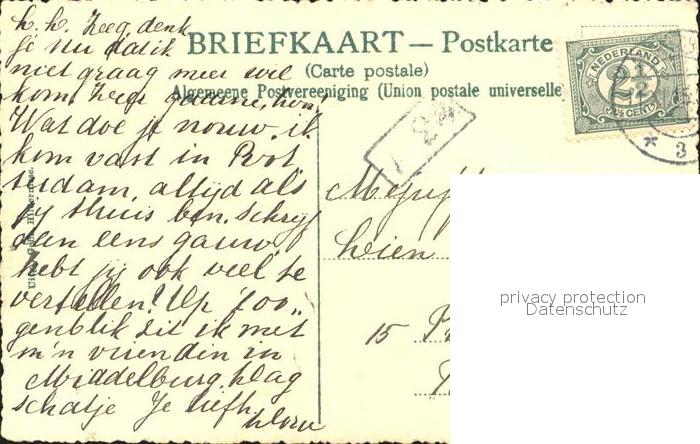 L. L. Zeg, denk
je nu dat ik
niet graag meer wil
kom? Zeg gauw, hoor!
Wat doe je nouw. ik
kom vast in Rot
terdam, altijd als
jij thuis ben. Schrijf
dan eens gauw,
hebt jij ook veel te
vertellen? Op 't oo„
genblik zit ik met
m'n vriendin in
Middelburg. Dag
schatje Je liefh.
BRIEFKAART — Postkarte
(Carte postale)
Algemeene Postvereeniging (Union postale universelle
NEDERLAND
2½
2½ CENT
3
Mejuff
Wien
15
privacy protection
Datenschutz